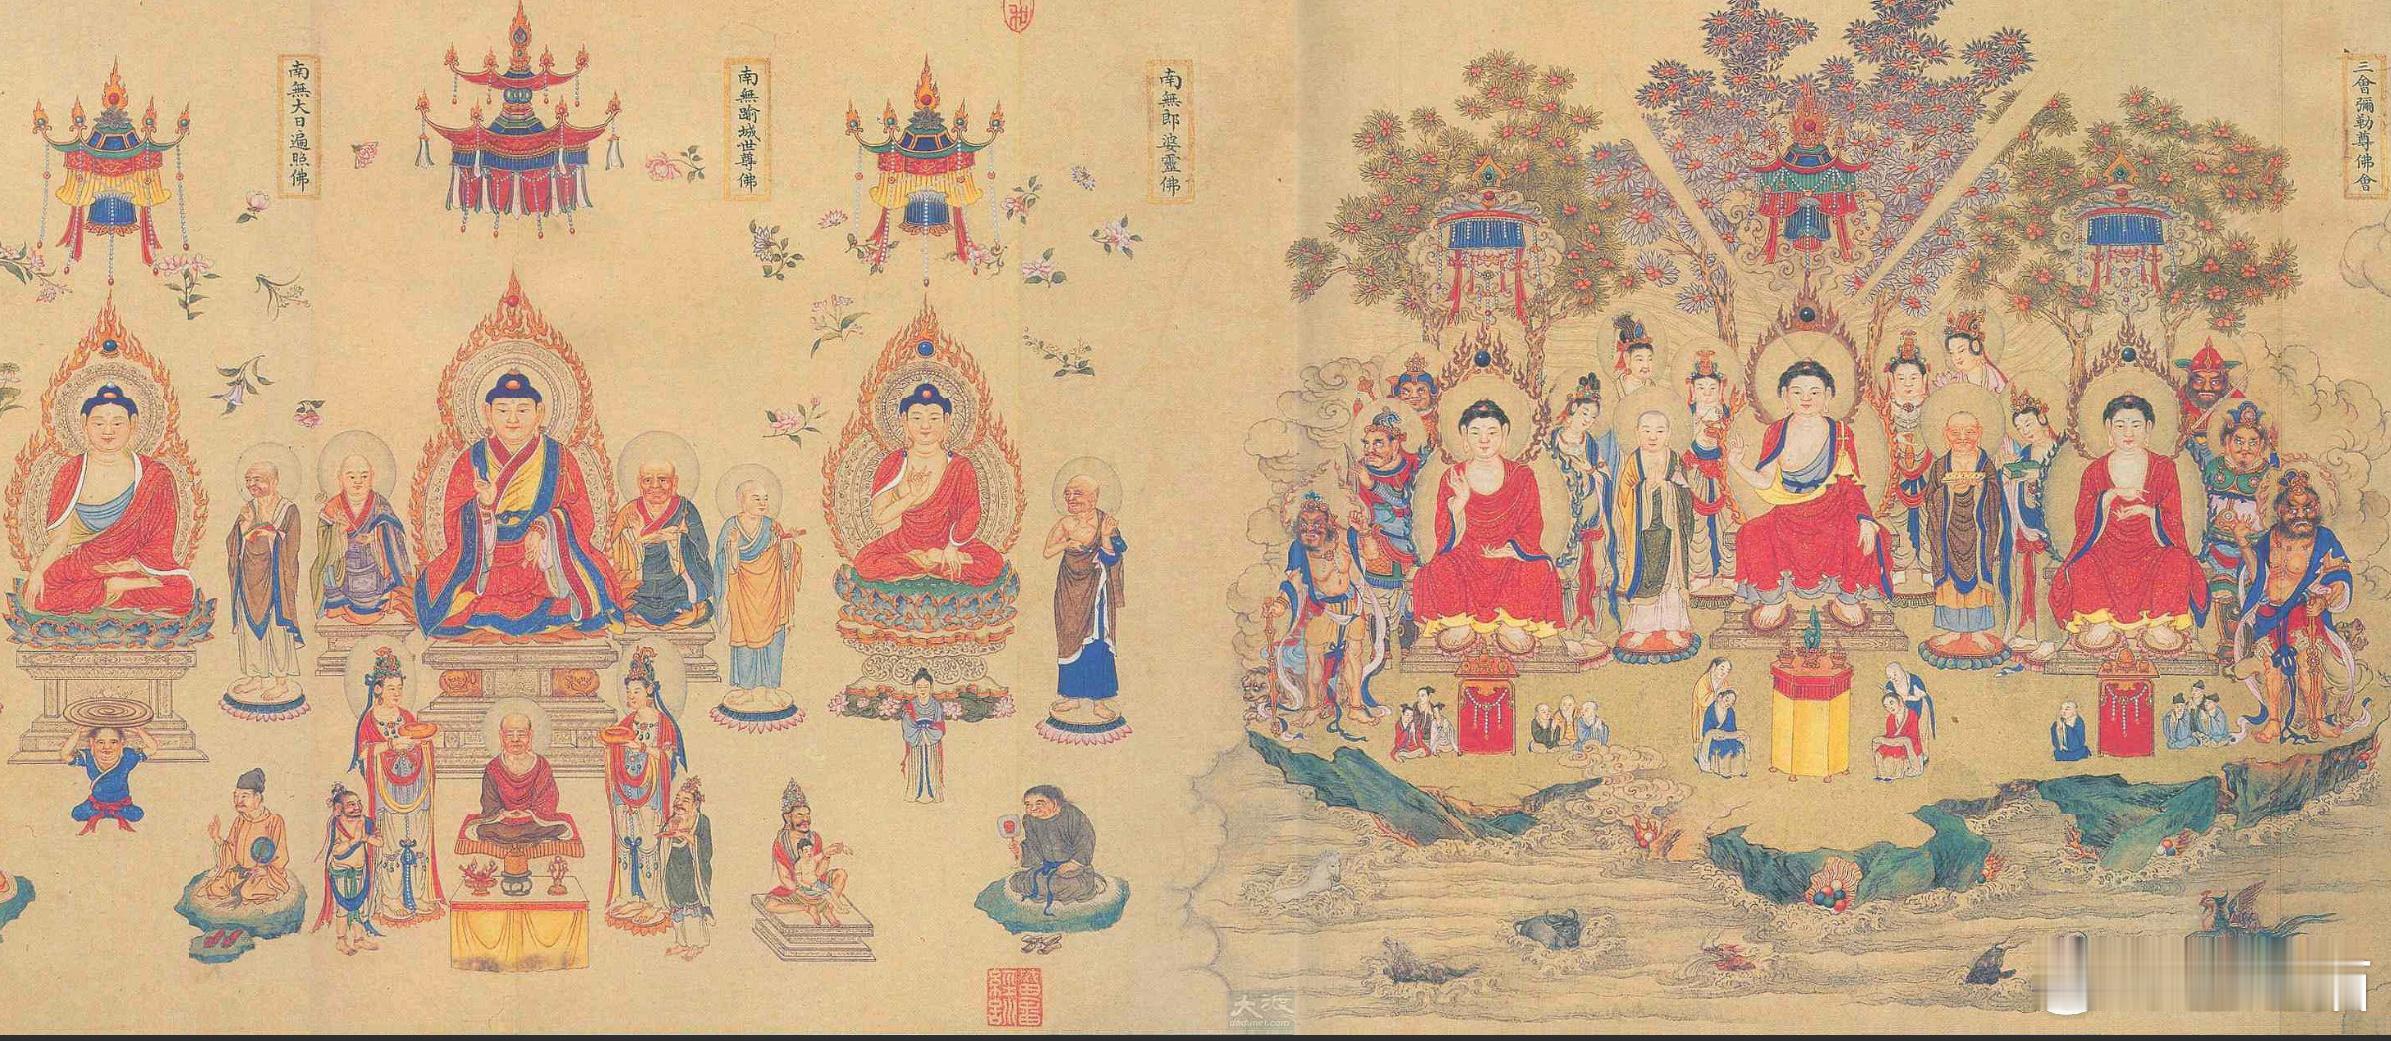 三會彌勒尊佛會
南無郎婆靈佛
南無踰城世尊佛
南無大日遍照佛